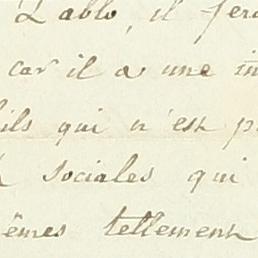 Pablo, il fera
car il a une in
ils qui n'est p
sociales qui
êmes tellement